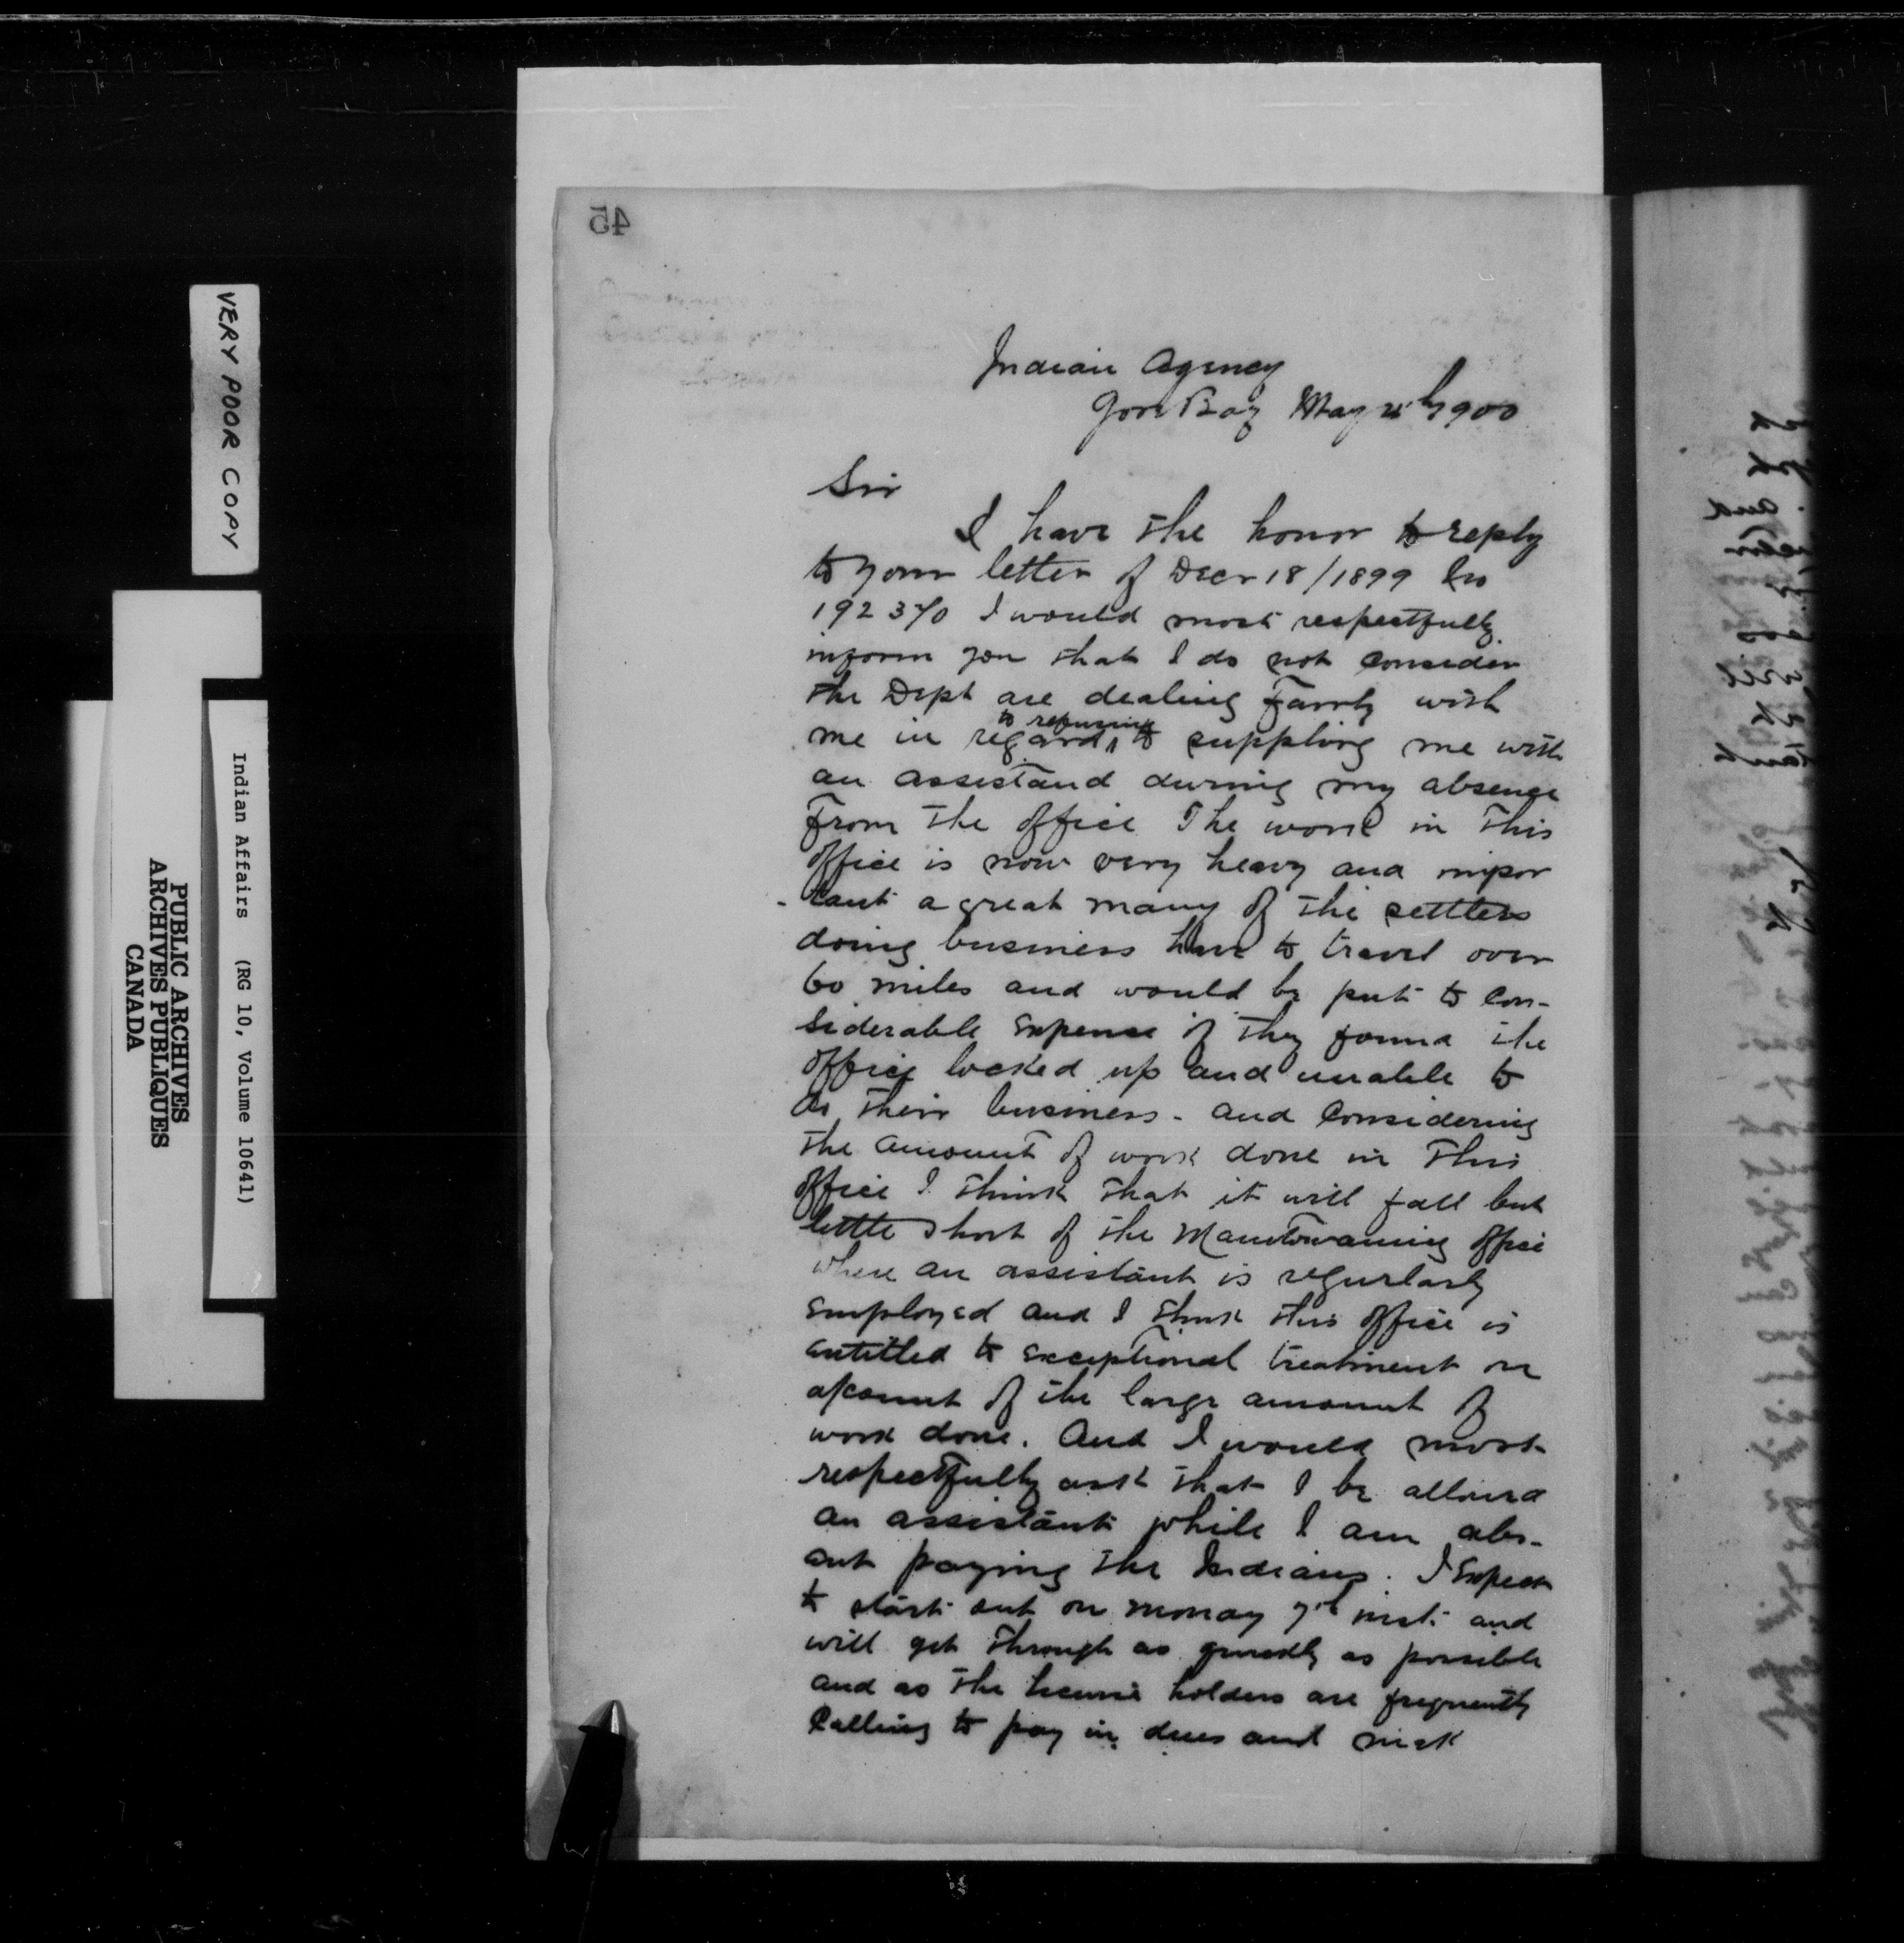 45
Indian Agency
Gore Bay May 1900
Sir
I have the honor to reply
to your letter of Decr 18/1899 No
I would most respectfully
inform you that I do not consider
the Dept are dealing Fairly with
to refusing
me in regard to suppling me with
an assistand during my absence
From the office The work in This
office is now very heavy and impor
-tant a great many of the settlers
doing business have to travel over
60 miles and would be put to con-
siderable expense if they found the
office locked up and unable to
do their business - and considering
the amount of work done in This
office I think that it will fall but
little short of the Manitowaning office
where an assistant is regurlarly
employed and I think this office is
entitled to exceptional treatment on
account of the large amount of
work done. And I would most
respectfully ask that I be allowed
an assistant while I am abs-
ent paying the Indians. I expect
to start out on monay 7th inst. and
will get through as quickly as possible
and as the license holders are frequently
calling to pay in dues and
VERY POOR COPY
Indian Affairs (RG 10, Volume 10641)
PUBLIC ARCHIVES
ARCHIVES PUBLIQUES
CANADA